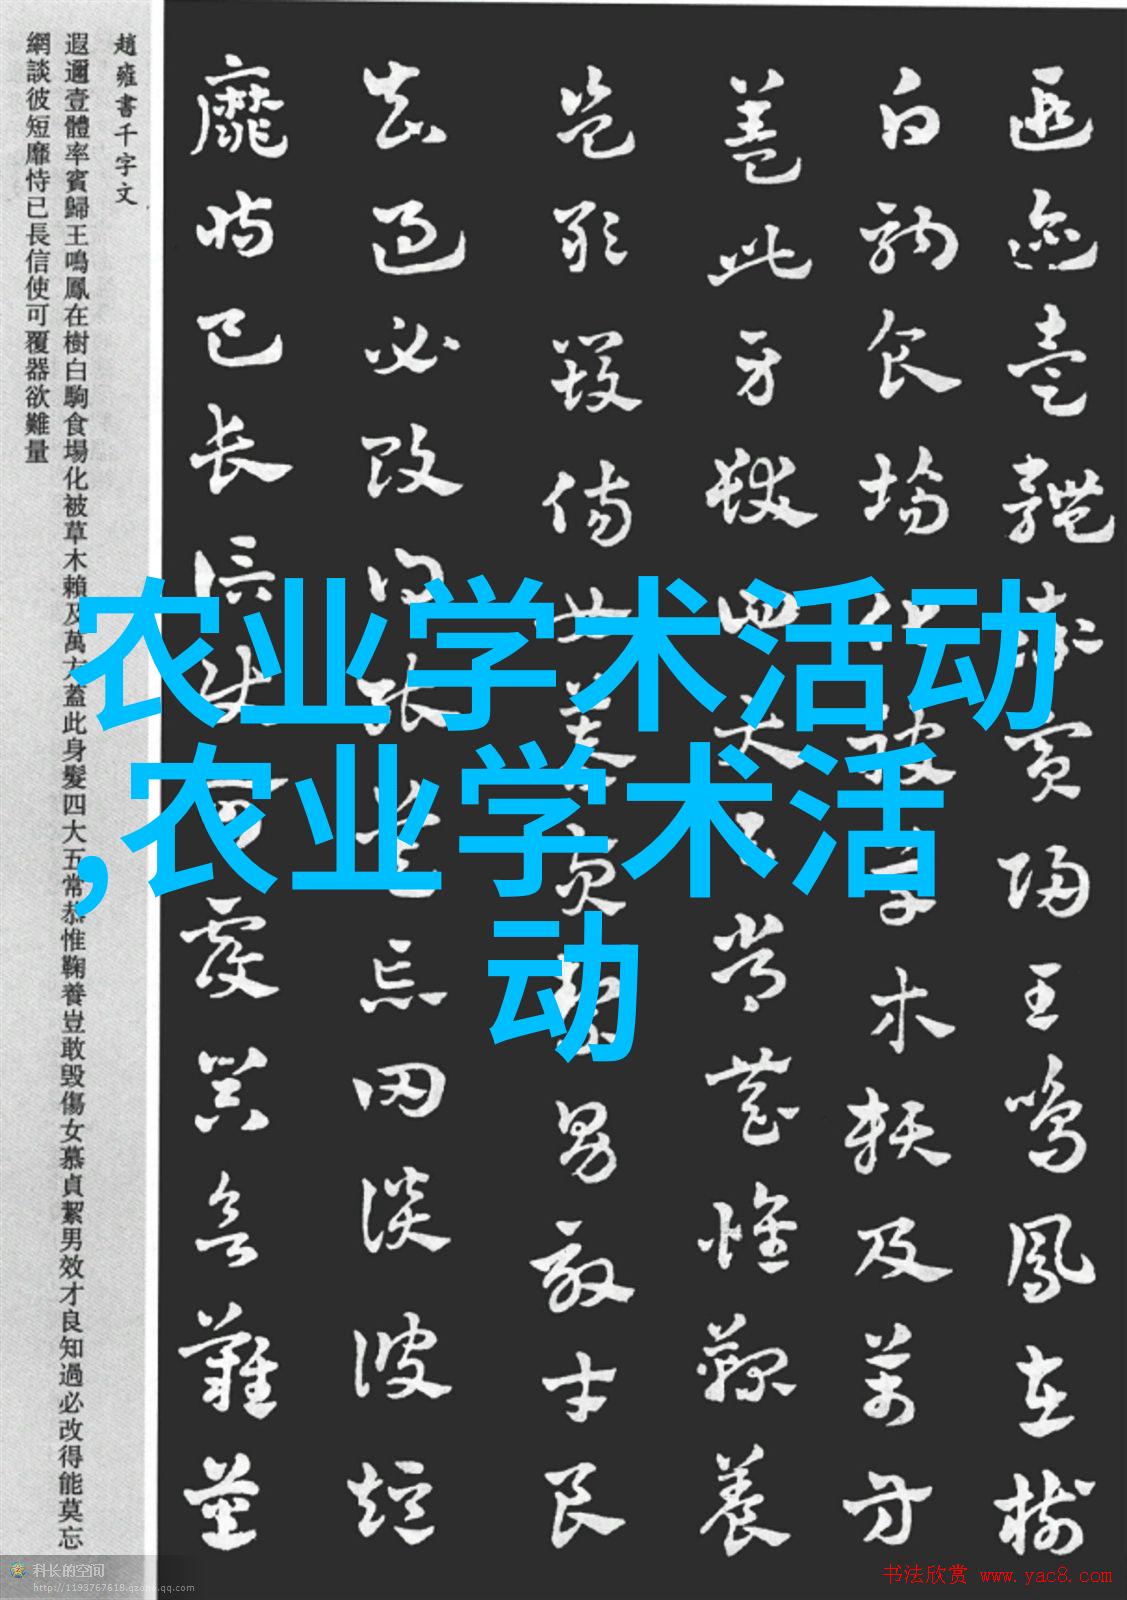 农业学术活动
,农业学术活
动
遐邇壹體率賓歸王鳴鳳在樹
白駒食場化被草木賴及萬方
蓋此身髮四大五常恭惟鞠養
豈敢毀傷女慕貞絜男效才良
知過必改得能莫忘罔談彼短
靡恃已長信使可覆器欲難量
趙雍書千字文
遐邇壹體率賓歸王鳴鳳在樹白駒食場化被草木賴及萬方蓋此身髮四大五常恭惟鞠養豈敢毀傷女慕貞絜男效才良知過必改得能莫忘
網談彼短靡恃已長信使可覆器欲難量
科长的空间
http://1193767618.qzone.qq.com
书法欣赏 www.yac8.com